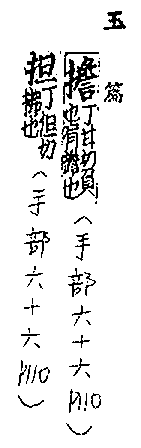 玉篇
擔丁甘切負也有贍也(手部六十六P110)
担丁但切拂也(手部六十六P110)